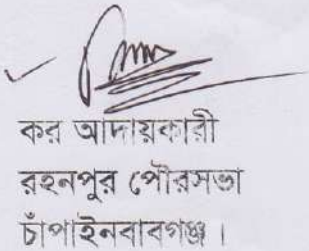 কর আদায়কারী
রহনপুর পৌরসভা
চাঁপাইনবাবগঞ্জ।